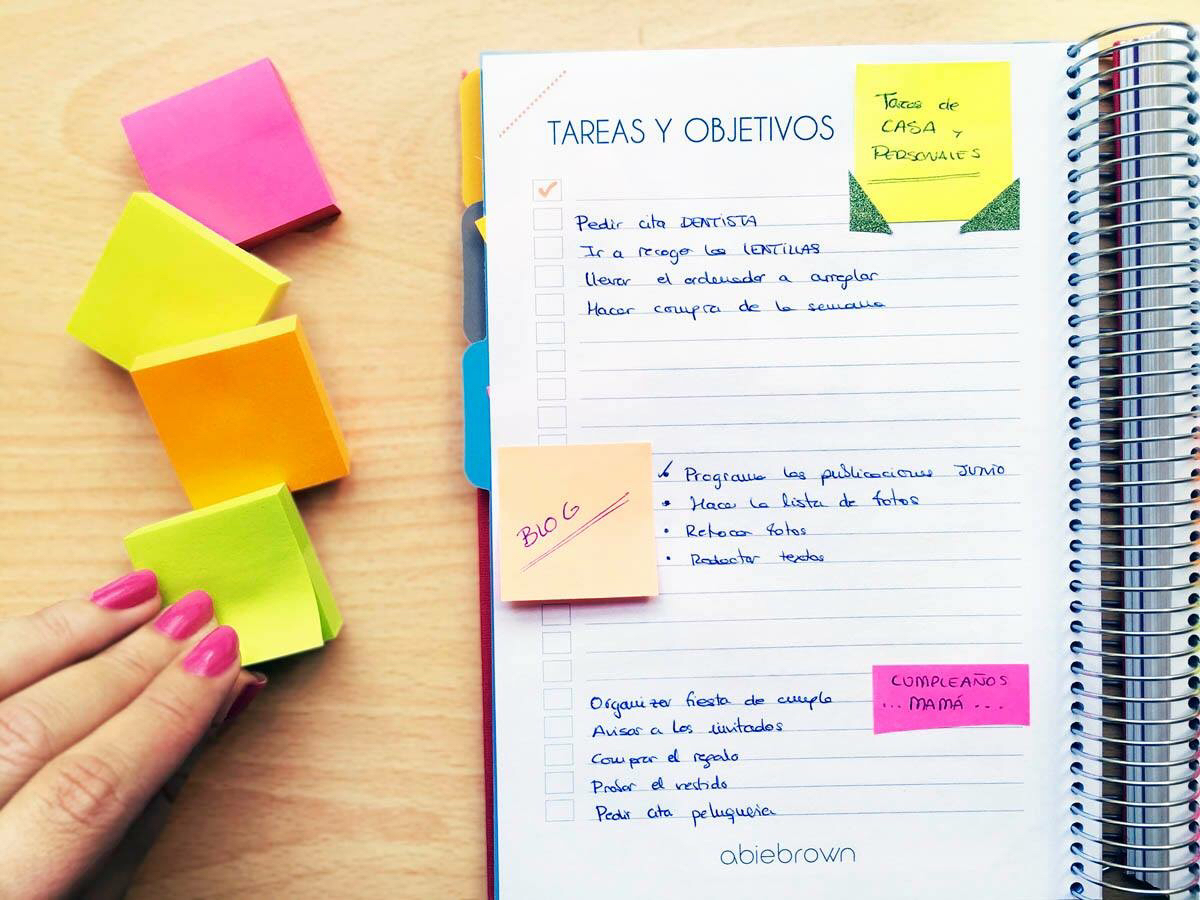 TAREAS Y OBJETIVOS
Tareas de
CASA y
PERSONALES
Pedir cita DENTISTA
Ir a recoger las LENTILLAS
Llevar el ordenador a arreglar
Hacer compra de la semana
BLOG
Programar las publicaciones JUNIO
Hacer la lista de fotos
Retocar fotos
Redactar textos
CUMPLEAÑOS
... MAMÁ ...
Organizar fiesta de cumple
Avisar a los invitados
Comprar el regalo
Probar el vestido
Pedir cita peluquería
abiebrown